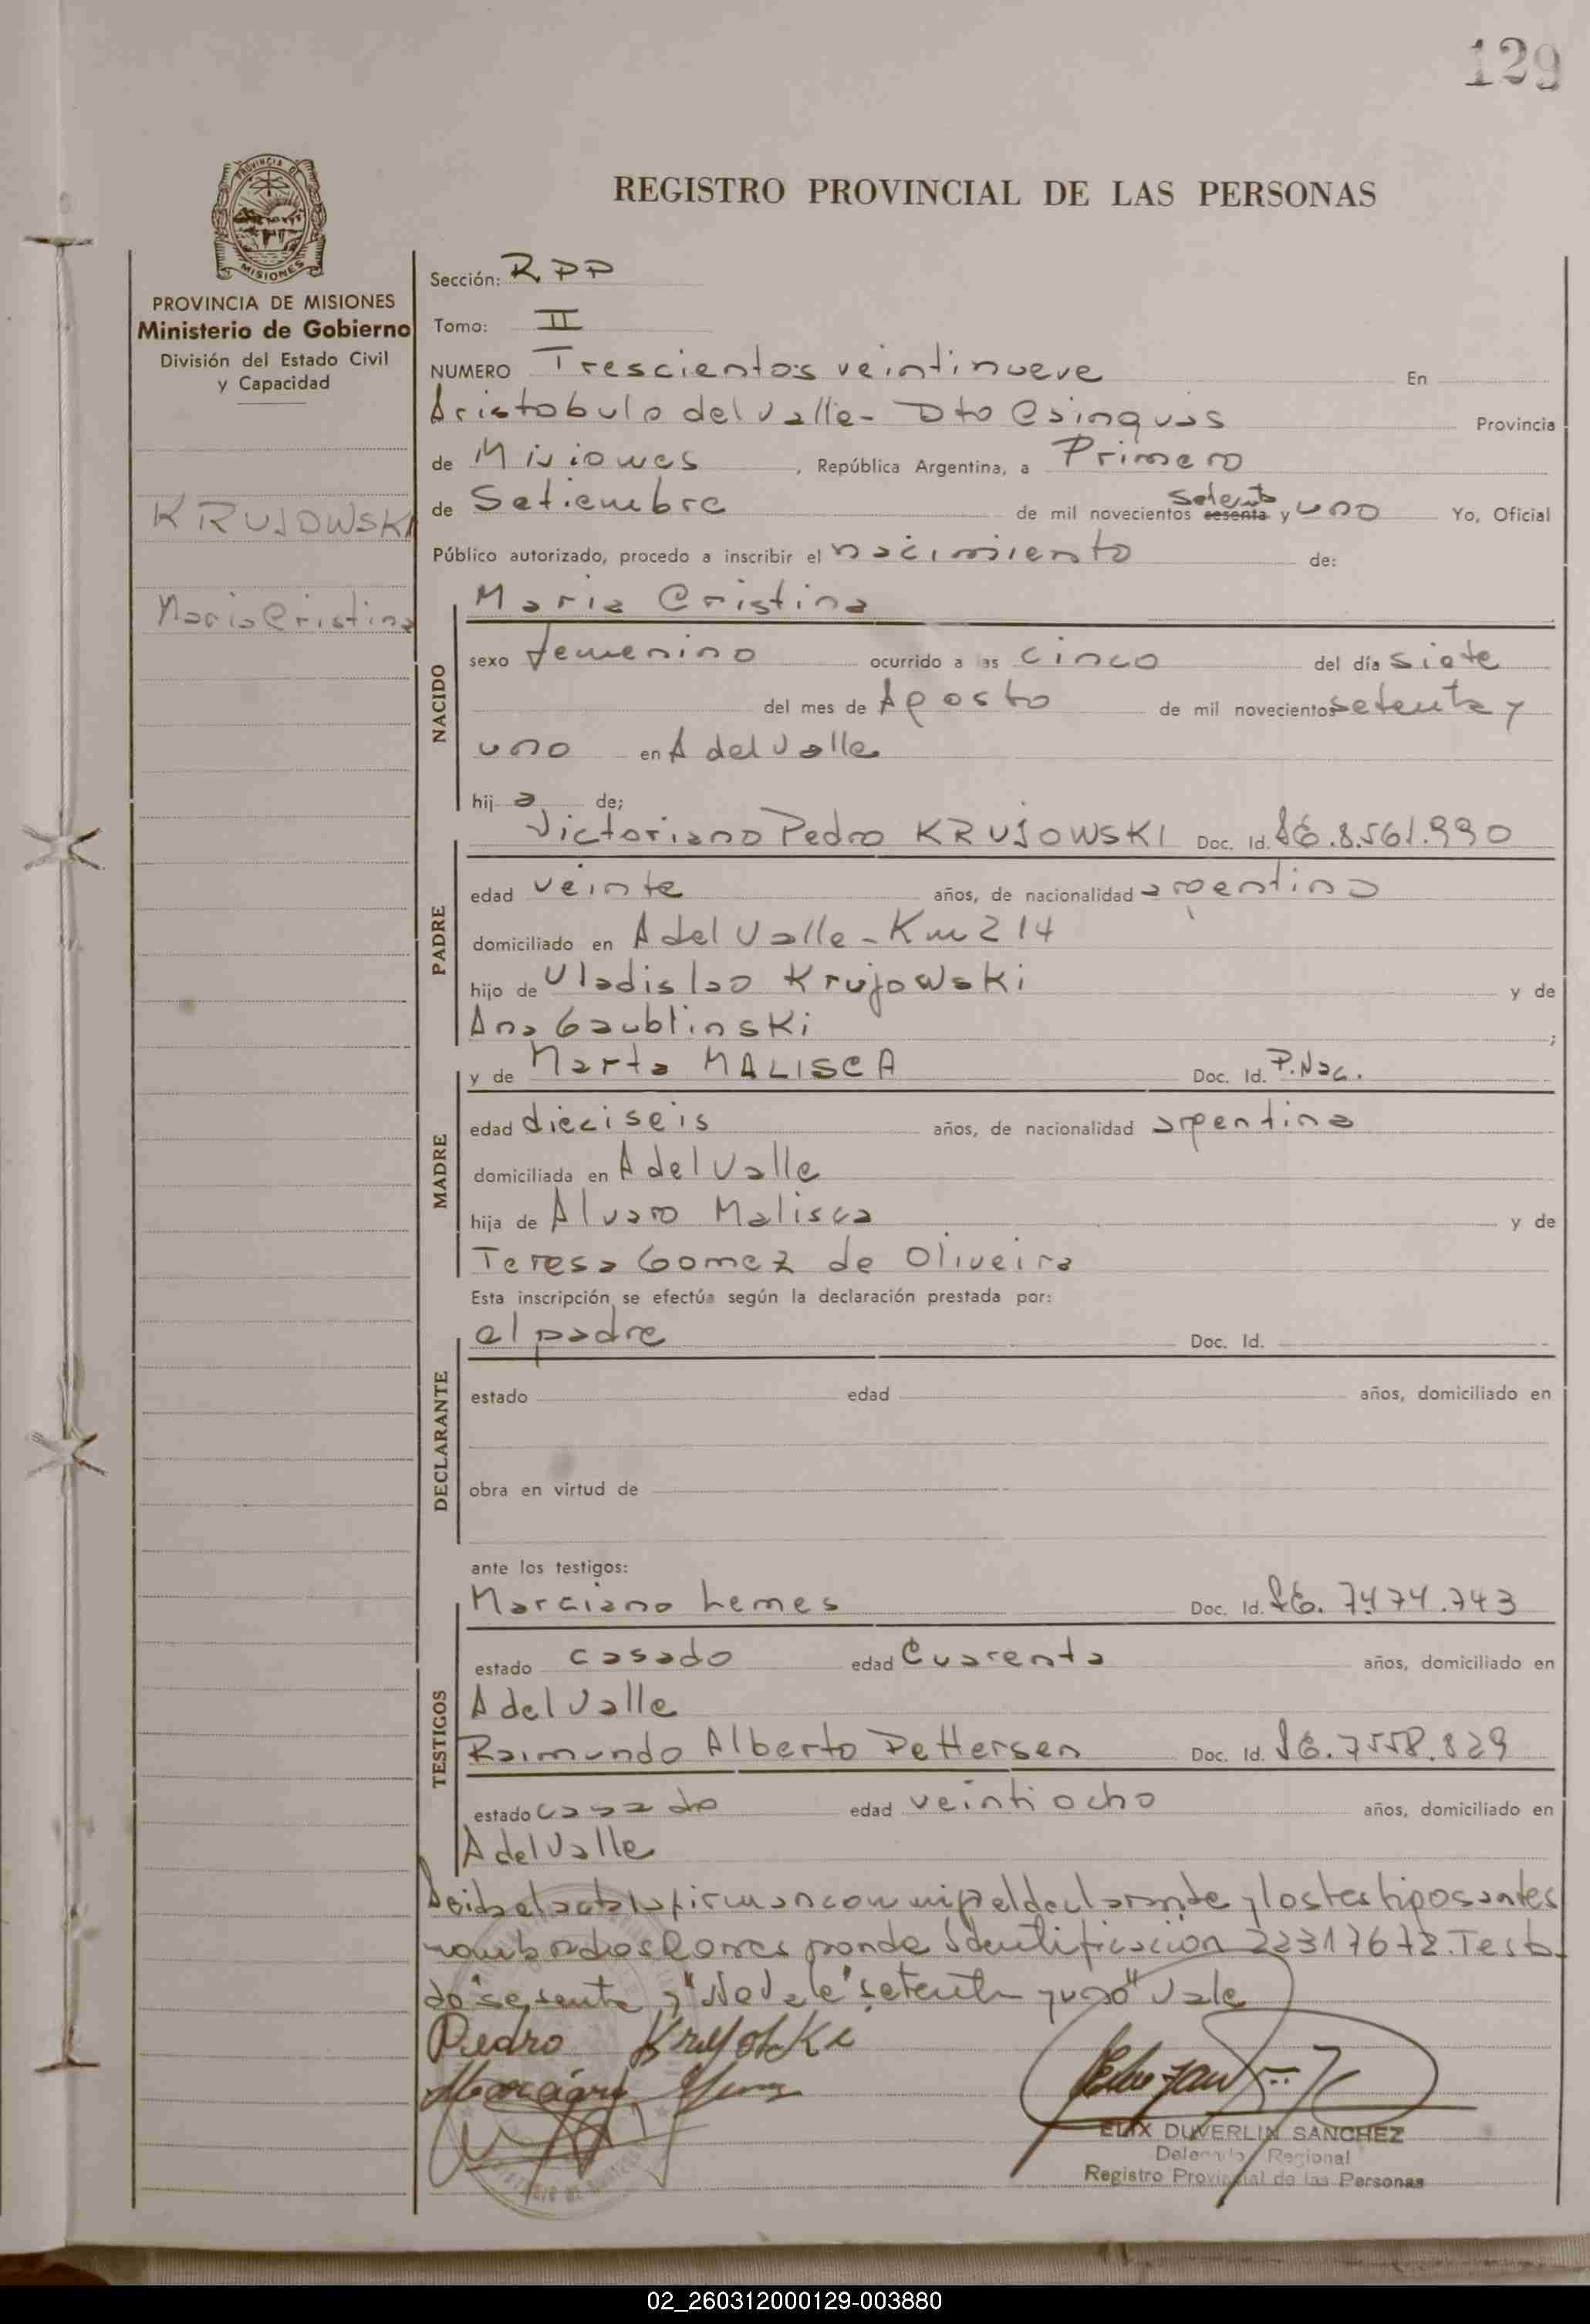 129
PROVINCIA DE
MISIONES
REGISTRO PROVINCIAL DE LAS PERSONAS
PROVINCIA DE MISIONES
Ministerio de Gobierno
División del Estado Civil
y Capacidad
KRUJOWSKI
Maria Cristina
Sección: RPP
Tomo: II
NUMERO Trescientos veintinueve En
Aristobulo del Valle - Dto Cainguas Provincia
de Misiones, República Argentina, a Primero
de Setiembre de mil novecientos sesenta setenta y uno Yo, Oficial
Público autorizado, procedo a inscribir el nacimiento de:
NACIDO
Maria Cristina
sexo femenino ocurrido a las cinco del día siete
del mes de Agosto de mil novecientos setenta y
uno en A del Valle
hij a de;
PADRE
Victoriano Pedro KRUJOWSKI Doc. Id. LE.8.561.990
edad veinte años, de nacionalidad argentino
domiciliado en A del Valle - Km 214
hijo de Vladislao Krujowski y de
Ana Gaublinski ;
MADRE
y de Marta MALISCA Doc. Id. P.Nac.
edad dieciseis años, de nacionalidad argentina
domiciliada en A del Valle
hija de Alvaro Malisca y de
Teresa Gomez de Oliveira
Esta inscripción se efectúa según la declaración prestada por:
DECLARANTE
el padre Doc. Id.
estado edad años, domiciliado en
obra en virtud de
ante los testigos:
TESTIGOS
Marciano Lemes Doc. Id. LE. 7.474.743
estado casado edad Cuarenta años, domiciliado en
A del Valle
Raimundo Alberto Pettersen Doc. Id. LE. 7558.829
estado casado edad veintiocho años, domiciliado en
A del Valle
Leida el acta la firman conmigo el declarante y los testigos antes
nombrados Corresponde Identificación 22317672. Testa
do "sesenta y" No Vale "setenta y uno" Vale
Pedro
ELIX DUVERLIN SANCHEZ
Delegado Regional
Registro Provincial de las Personas
02_260312000129-003880